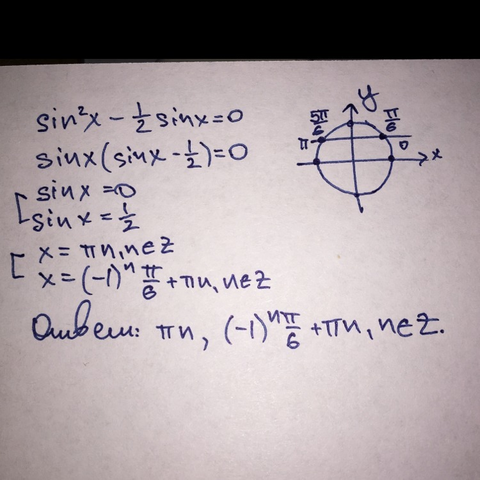 sin²x - 1/2 sinx = 0
sinx(sinx - 1/2) = 0
[ sinx = 0
sinx = 1/2
[ x = πn, n∈Z
x = (-1)ⁿ π/6 + πn, n∈Z
Ответ: πn, (-1)ⁿ π/6 + πn, n∈Z.
y
5π/6 π/6
π 0
x